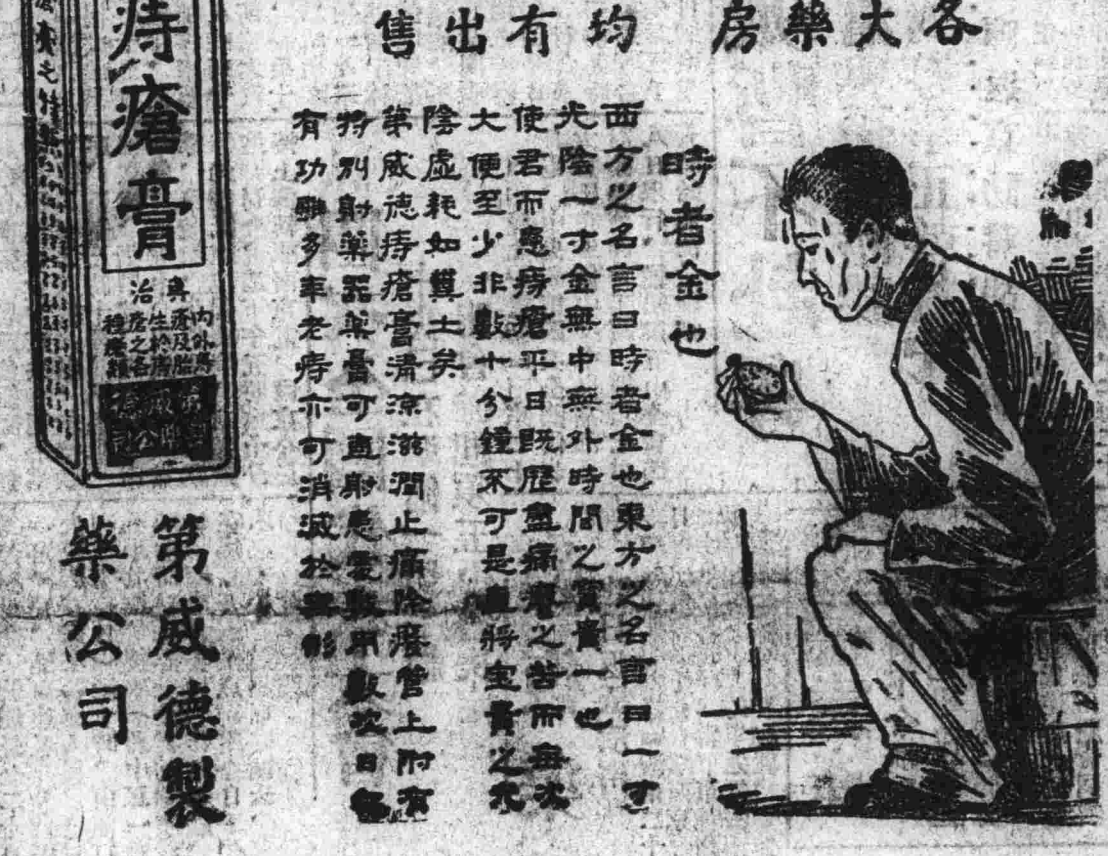 各大藥房　均有出售
時者金也
西方之名言曰時者金也東方之名言曰一寸
光陰一寸金無中無外時間之寶貴一也
使君而患痔瘡平日既歷盡痛癢之苦而每次
大便至少非數十分鐘不可是直將寶貴之光
陰虛耗如糞土矣
第威德痔瘡膏清涼滋潤止痛除癢管上附有
特別射藥器藥膏可直射患處敷用數次日
有功雖多年老痔亦可消滅於無形
痔瘡膏
專治
內外
痔瘡及
生於
瘡之
第威德製
藥公司